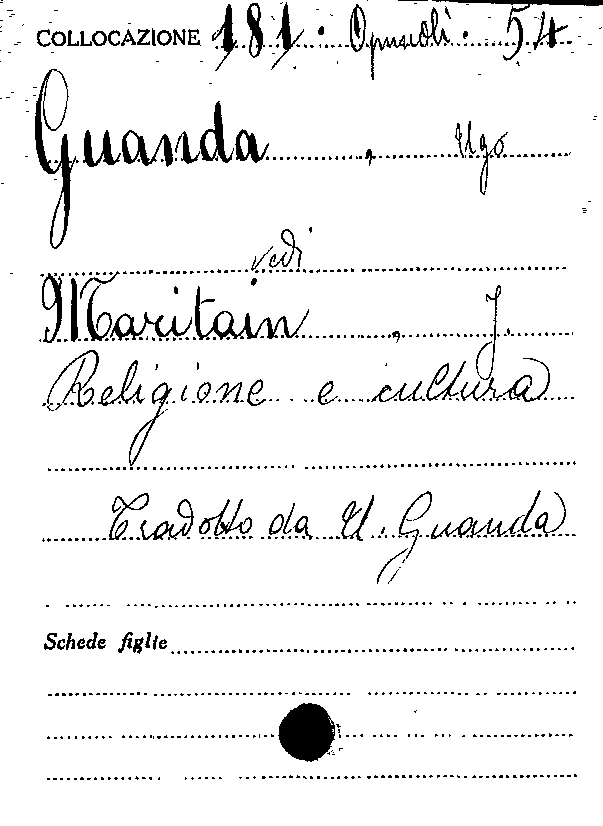 COLLOCAZIONE 181. Opuscoli. 54
Guanda, Ugo
vedi
Maritain, J.
Religione e cultura
Tradotto da U. Guanda
Schede figlie